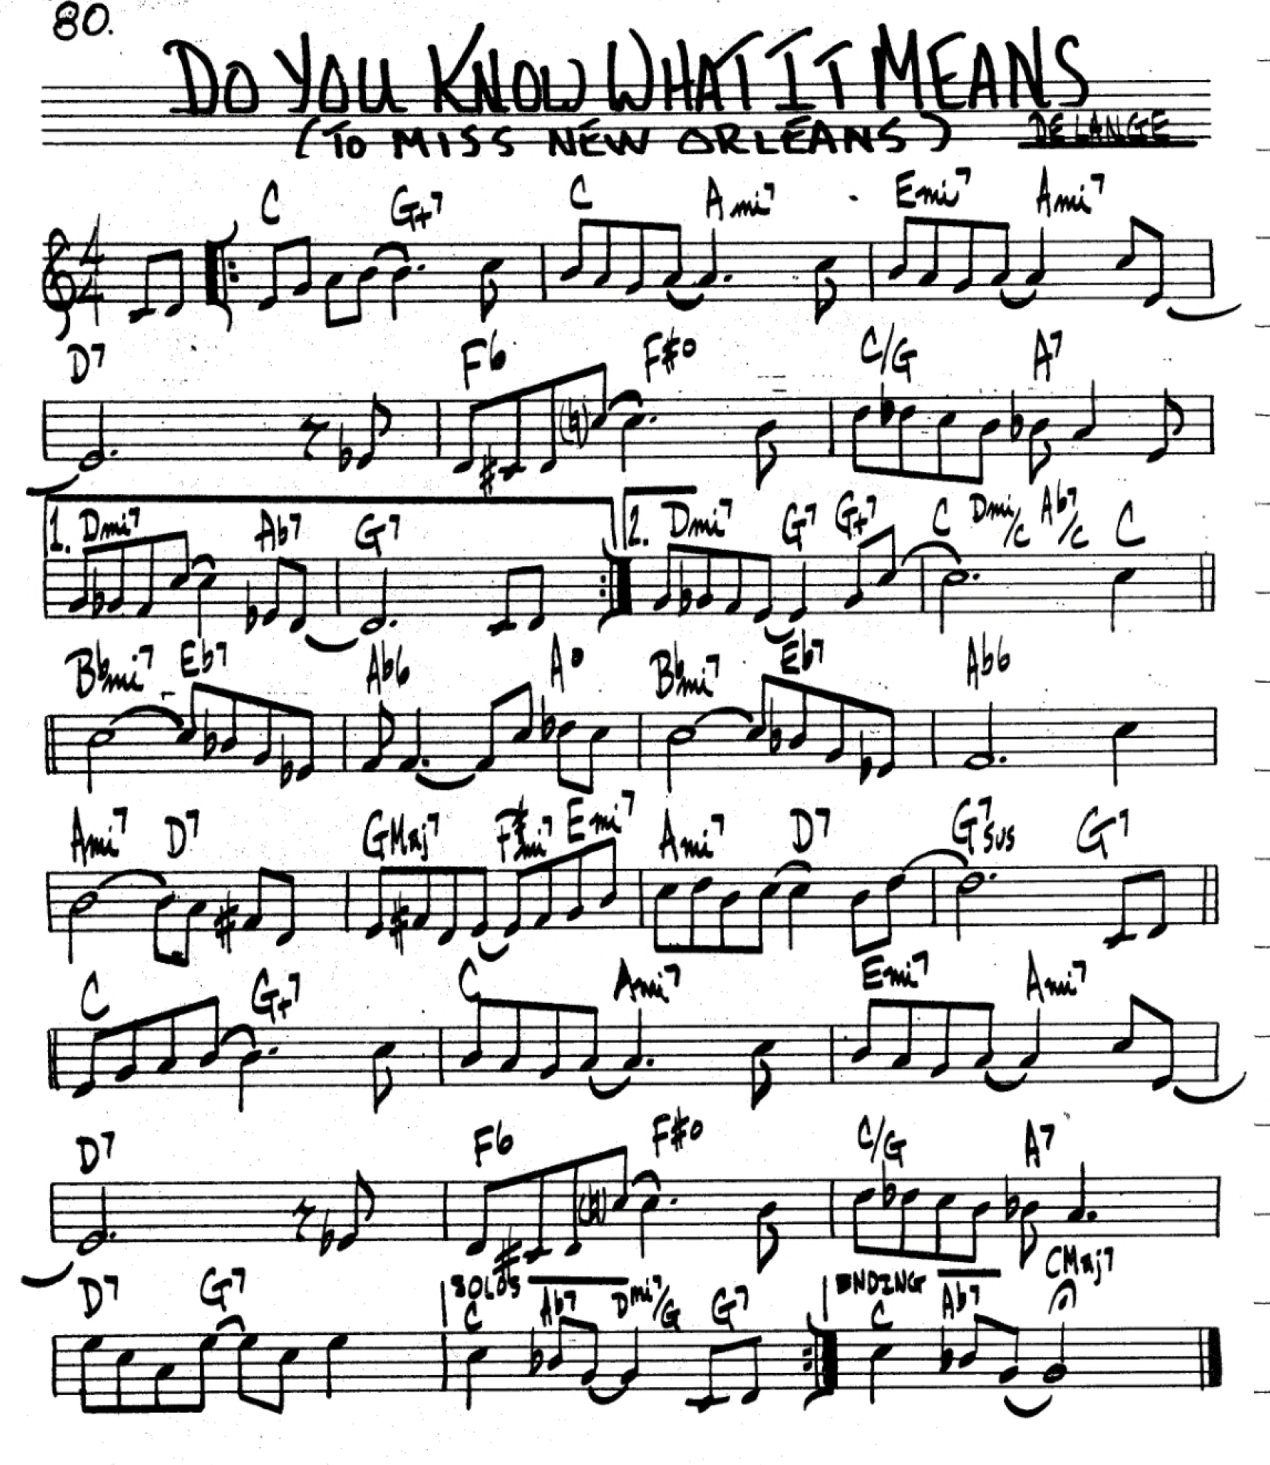 80.
DO YOU KNOW WHAT IT MEANS
(TO MISS NEW ORLEANS) DELANGE
4
4
C G+7 C Ami7 Emi7 Ami7
D7 F6 F#o C/G A7
1. Dmi7 Ab7 G7 2. Dmi7 G7 G+7 C Dmi/C Ab7/C C
Bbmi7 Eb7 Ab6 Ao Bbmi7 Eb7 Ab6
Ami7 D7 GMaj7 F#mi7 Emi7 Ami7 D7 G7sus G7
C G+7 C Ami7 Emi7 Ami7
D7 F6 F#o C/G A7
D7 G7 SOLOS C Ab7 Dmi7/G G7 ENDING C Ab7 CMaj7